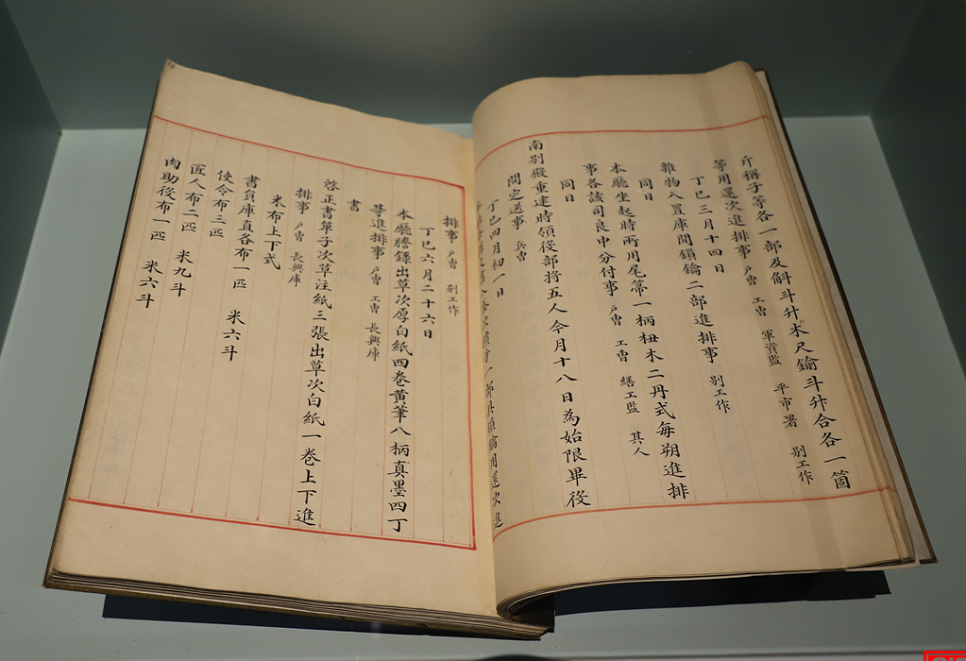 斤稱子等各一部及斛斗升木尺鑰斗升合各一箇
等用還次進排事 戶曹 工曹 軍資監 平市署 別工作
丁巳三月十四日
雜物入置庫間鎖鑰二部進排事 別工作
同日
本廳坐起時所用尾箒一柄杻木二丹式每朔進排
事各該司良中分付事 戶曹 工曹 繕工監 其人
同日
南別殿重建時領役部將五人今月十八日為始限畢役
間定送事 兵曹
丁巳四月初一日
排事 戶曹 別工作
丁巳六月二十六日
本廳謄錄出草次厚白紙四卷黃筆八柄真墨四丁
等進排事 戶曹 工曹 長興庫
書
啓正書單子次草注紙三張出草次白紙一卷上下進
排事 戶曹 長興庫
米布上下式
書員庫直各布一匹 米六斗
使令布三匹
匠人布二匹 米九斗
肉助役布一匹 米六斗